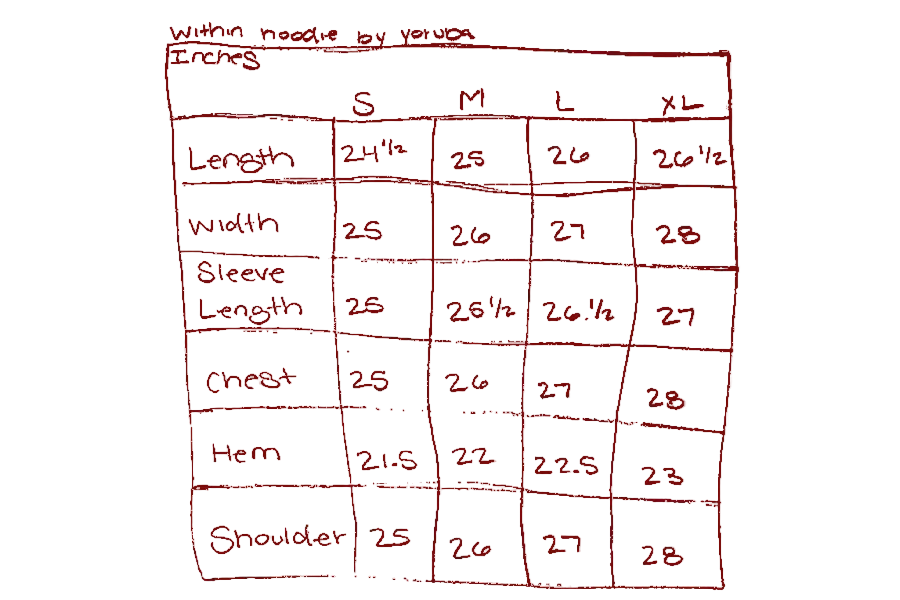 within hoodie by yoruba
Inches
S M L XL
Length 24 1/2 25 26 26 1/2
Width 25 26 27 28
Sleeve
Length 25 25 1/2 26.1/2 27
Chest 25 26 27 28
Hem 21.5 22 22.5 23
Shoulder 25 26 27 28